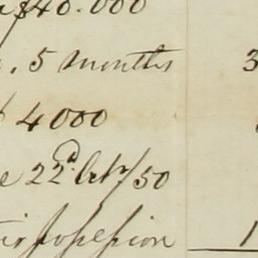 $40.000
5 months 3
4000
22d. Octr/50
possession 1